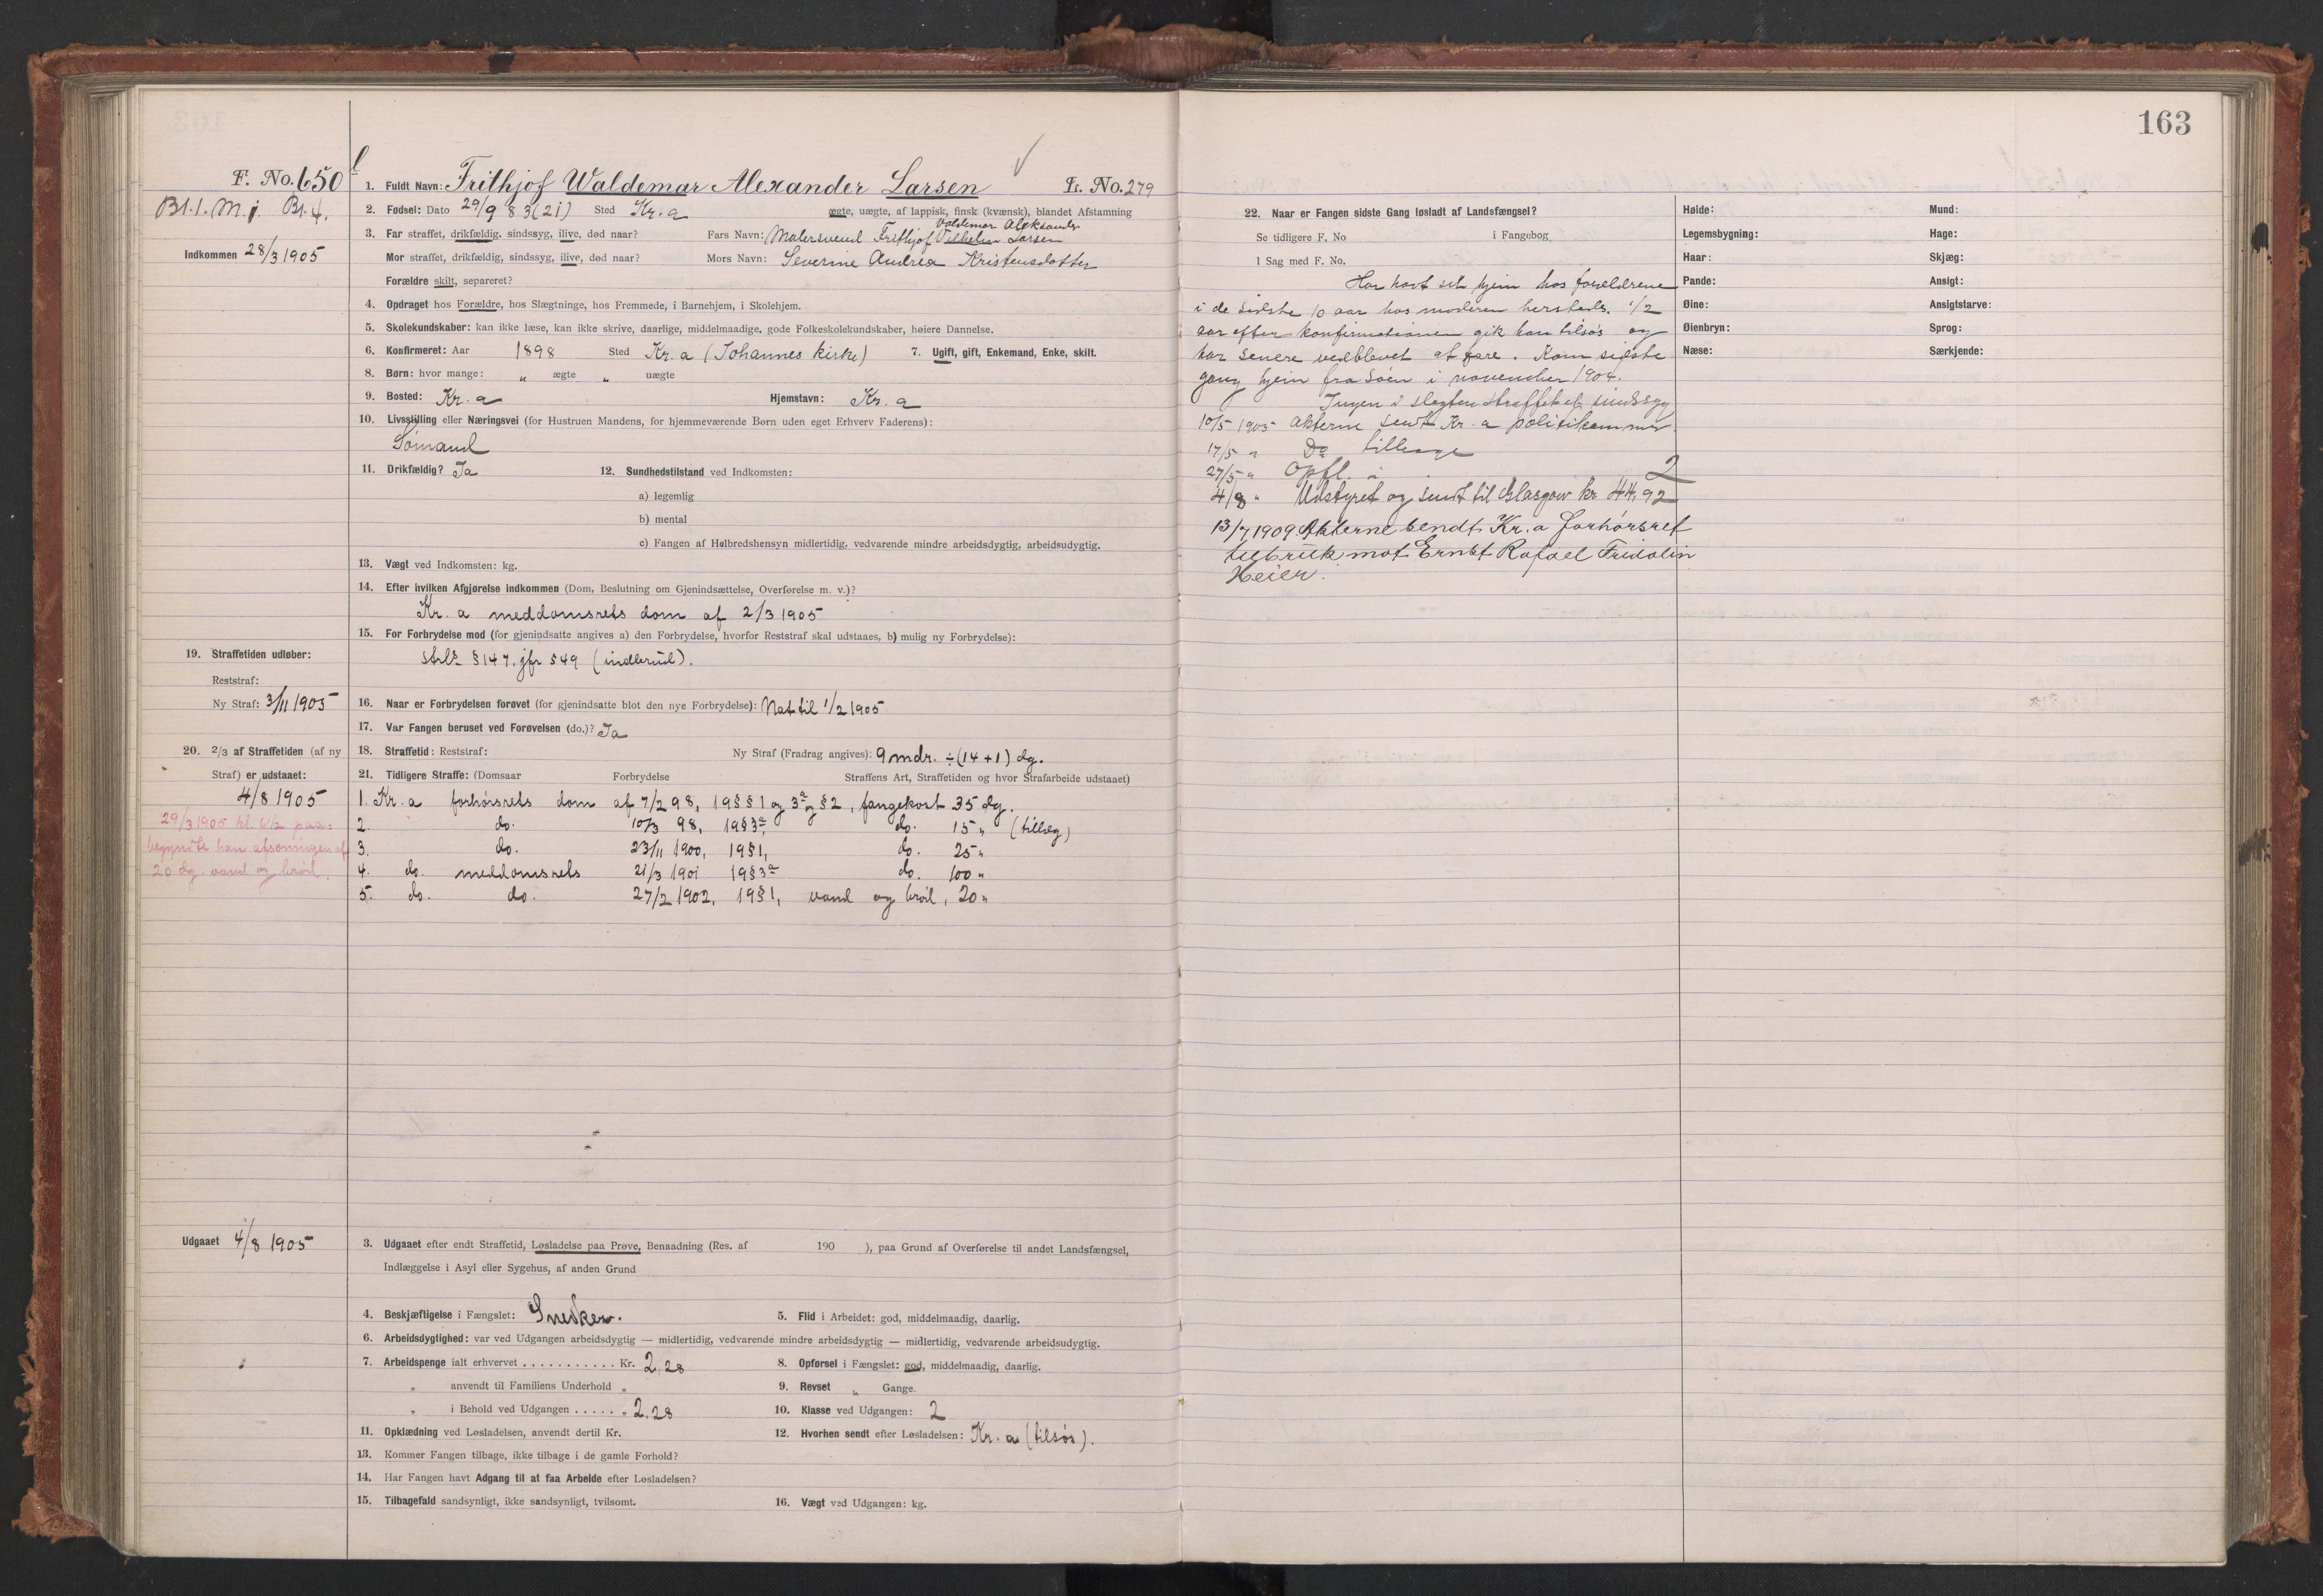 163
F. No. 650
1. Fuldt Navn: Frithjof Waldemar Alexander Larsen Fr. No. 279
Bl. 1. M. j. Bl. 4.
2. Fødsel: Dato 29/9 83 (21) Sted Kr.a ægte, uægte, af lappisk, finsk (kvænsk), blandet Afstamning
Valdemar Aleksander
3. Far straffet, drikfældig, sindssyg, ilive, død naar? Fars Navn: Malersvend Frithjof Vilhelm Larsen
Indkommen 28/3 1905
Mor straffet, drikfældig, sindssyg, ilive, død naar? Mors Navn: Severine Andrea Kristensdatter
Forældre skilt, separeret?
4. Opdraget hos Forældre, hos Slægtninge, hos Fremmede, i Barnehjem, i Skolehjem.
5. Skolekundskaber: kan ikke læse, kan ikke skrive, daarlige, middelmaadige, gode Folkeskolekundskaber, høiere Dannelse.
6. Konfirmeret: Aar 1898 Sted Kr.a (Johannes kirke) 7. Ugift, gift, Enkemand, Enke, skilt.
8. Børn: hvor mange: " ægte " uægte
9. Bosted: Kr.a Hjemstavn: Kr.a
10. Livsstilling eller Næringsvei (for Hustruen Mandens, for hjemmeværende Børn uden eget Erhverv Faderens):
Sømand
11. Drikfældig? Ja 12. Sundhedstilstand ved Indkomsten:
a) legemlig
b) mental
c) Fangen af Helbredshensyn midlertidig, vedvarende mindre arbeidsdygtig, arbeidsudygtig.
13. Vægt ved Indkomsten: kg.
14. Efter hvilken Afgjørelse indkommen (Dom, Beslutning om Gjenindsættelse, Overførelse m. v.)?
Kr.a meddomsrets dom af 2/3 1905
15. For Forbrydelse mod (for gjenindsatte angives a) den Forbrydelse, hvorfor Reststraf skal udstaaes, b) mulig ny Forbrydelse):
19. Straffetiden udløber:
strl. § 147. jfr § 49 (indbrud).
Reststraf:
Ny Straf: 3/11 1905
16. Naar er Forbrydelsen forøvet (for gjenindsatte blot den nye Forbrydelse): Nat til 1/2 1905
17. Var Fangen beruset ved Forøvelsen (do.)? Ja
20. 2/3 af Straffetiden (af ny
Straf) er udstaaet:
4/8 1905
18. Straffetid: Reststraf: Ny Straf (Fradrag angives): 9 mdr. ÷ (14 + 1) dg.
21. Tidligere Straffe: (Domsaar Forbrydelse Straffens Art, Straffetiden og hvor Strafarbeide udstaaet)
1. Kr.a forhørsrets dom af 7/2 98, 19 § § 1 og 3a og § 2, fangekost 35 dg.
2. do. 10/3 98, 19 § 3a, do. 15 " (tillæg)
3. do. 23/11 1900, 19 § 1, do. 25 "
4. do. meddomsrets 21/3 1901 19 § 3a do. 100 "
5. do. do. 27/2 1902, 19 § 1, vand og brød, 20 "
29/3 1905 kl. 6 1/2 paa=
begyndte han afsoningen af
20 dg. vand og brød.
Udgaaet 4/8 1905
3. Udgaaet efter endt Straffetid, Løsladelse paa Prøve, Benaadning (Res. af 190 ), paa Grund af Overførelse til andet Landsfængsel,
Indlæggelse i Asyl eller Sygehus, af anden Grund
4. Beskjæftigelse i Fængslet: Snedker. 5. Flid i Arbeidet: god, middelmaadig, daarlig.
6. Arbeidsdygtighed: var ved Udgangen arbeidsdygtig — midlertidig, vedvarende mindre arbeidsdygtig — midlertidig, vedvarende arbeidsudygtig.
7. Arbeidspenge ialt erhvervet . . . . . . . . . . . Kr. 2,28 8. Opførsel i Fængslet: god, middelmaadig, daarlig.
" anvendt til Familiens Underhold " 9. Revset " Gange.
" i Behold ved Udgangen . . . . . " 2,28 10. Klasse ved Udgangen: 2
11. Opklædning ved Løsladelsen, anvendt dertil Kr. 12. Hvorhen sendt efter Løsladelsen: Kr.a (tilsøs).
13. Kommer Fangen tilbage, ikke tilbage i de gamle Forhold?
14. Har Fangen havt Adgang til at faa Arbeide efter Løsladelsen?
15. Tilbagefald sandsynligt, ikke sandsynligt, tvilsomt. 16. Vægt ved Udgangen: kg.
22. Naar er Fangen sidste Gang løsladt af Landsfængsel?
Se tidligere F. No i Fangebog
I Sag med F. No.
Har havt sit hjem hos forældrene
i de sidste 10 aar hos moderen hersteds. 1/2
aar efter konfirmationen gik han tilsøs og
har senere vedblevet at fare. Kom sidste
gang hjem fra søen i november 1904.
Ingen i slegten straffet el. sindssyg
10/5 1905 Akterne sendt Kr.a politikammer.
17/5 " Do tilbage
27/5 " Opfl. i 2
4/8 " Udstyret og sendt til Glasgow kr 44,92
13/7 1909 Akterne sendt Kr.a forhørsret
til bruk mot Ernst Rafael Fridolin
Heier.
Høide: Mund:
Legemsbygning: Hage:
Haar: Skjæg:
Pande: Ansigt:
Øine: Ansigtsfarve:
Øienbryn: Sprog:
Næse: Særkjende: